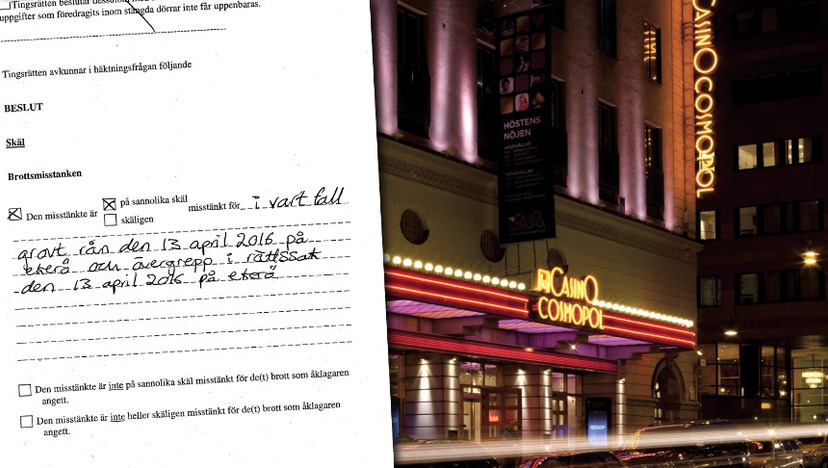 Tingsrätten beslutar dessutom
uppgifter som föredragits inom stängda dörrar inte får uppenbaras.
Tingsrätten avkunnar i häktningsfrågan följande
BESLUT
Skäl
Brottsmisstanken
Den misstänkte är
på sannolika skäl
skäligen
misstänkt för
i vart fall
grovt rån den 13 april 2016 på
ekerö och övergrepp i rättssak
den 13 april 2016 på ekerö
Den misstänkte är inte på sannolika skäl misstänkt för de(t) brott som åklagaren
angett.
Den misstänkte är inte heller skäligen misstänkt för de(t) brott som åklagaren
angett.
HÖSTENS
NÖJEN
CASINO
COSMOPOL
CASINO COSMOPOL